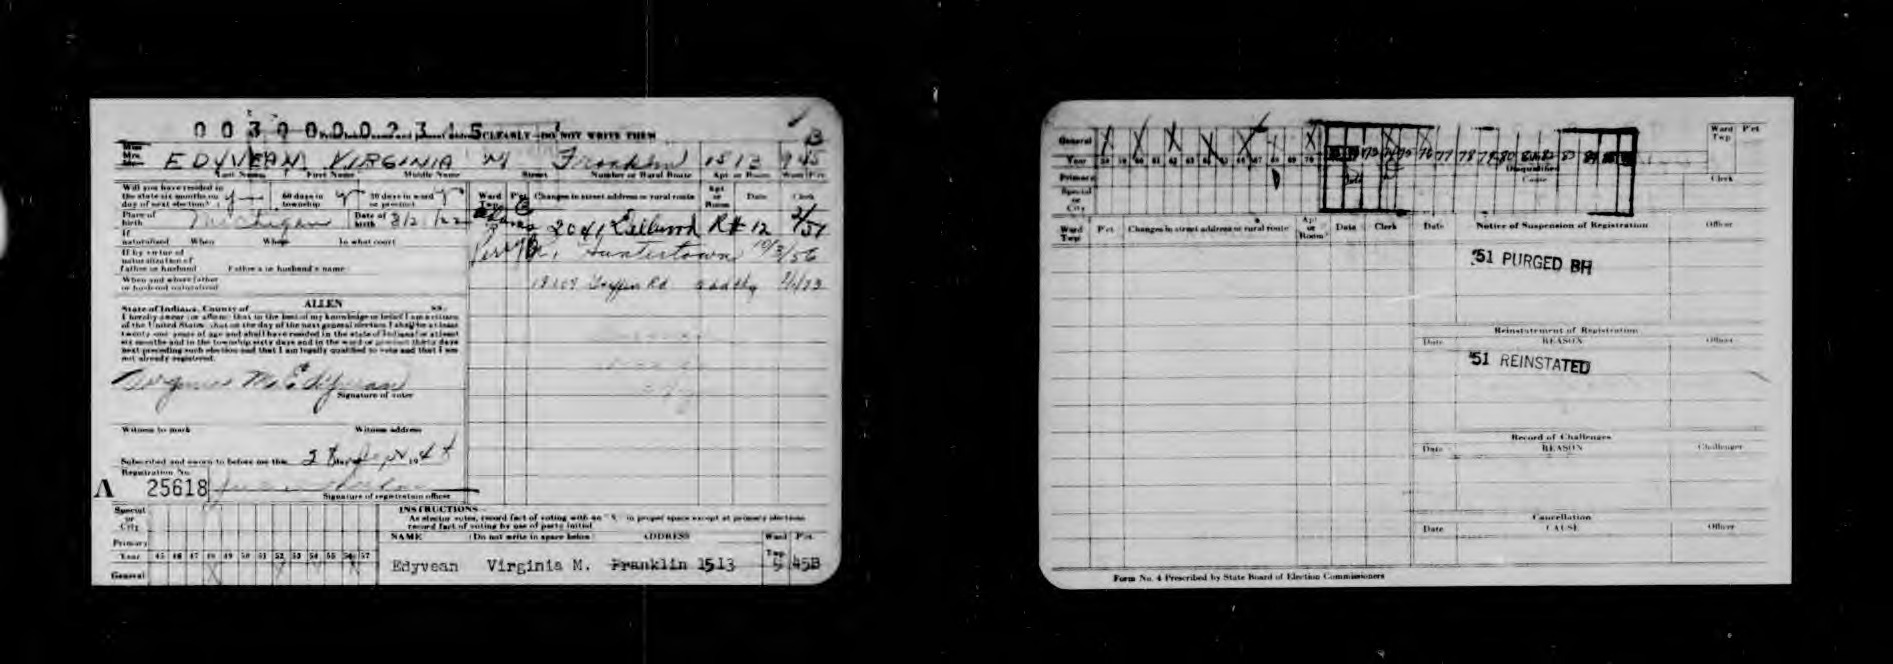 00300002315 CLEARLY—DO NOT WRITE THEM
Miss
Mrs. EDYVEAN VIRGINIA M Franklin 1513 9 45 B
Last Name First Name Middle Name Street Number or Rural Route Apt or Room Ward Pct
Will you have resided in the state six months on day of next election? 60 days in township 30 days in ward or precinct
Ward Twp Pct Changes in street address or rural route Apt or Room Date Clerk
Place of birth Michigan Date of birth 3/2/22
2041 Edlwood R# 12
If naturalized When Where In what court
Perry Huntertown 10/3/56
If by virtue of naturalization of father or husband Father's or husband's name
When and where father or husband naturalized
Griffin Rd
State of Indiana, County of ALLEN SS:
I hereby swear (or affirm) that to the best of my knowledge or belief I am a citizen
of the United States, that on the day of the next general election I shall be at least
twenty-one years of age and shall have resided in the state of Indiana for at least
six months and in the township sixty days and in the ward or precinct thirty days
next preceding such election and that I am legally qualified to vote and that I am
not already registered.
Virginia M. Edyvean
Signature of voter
Witness to mark Witness address
Subscribed and sworn to before me this 28 day Sept 1944
Registration No.
A 25618
Signature of registration officer
Special or City
Primary
Year 45 46 47 48 49 50 51 52 53 54 55 56 57
General X X X X
INSTRUCTIONS
As elector votes, record fact of voting with an "X" in proper space except at primary elections
record fact of voting by use of party initial
NAME (Do not write in space below) ADDRESS Ward Twp Pct
Edyvean Virginia M. Franklin 1513 5 45B
General X X X X X X
Year 58 59 60 61 62 63 64 65 66 67 68 69 70 73 74 75 76 77 78 79 80 81 82 83 84
Primary
Special or City
Disqualified
Cause
Ward Twp Pct
Clerk
Ward Twp Pct Changes in street address or rural route Apt or Room Date Clerk Date Notice of Suspension of Registration Officer
'51 PURGED BH
Reinstatement of Registration
Date REASON Officer
'51 REINSTATED
Record of Challenges
Date REASON Challenger
Cancellation
Date CAUSE Officer
Form No. 4 Prescribed by State Board of Election Commissioners